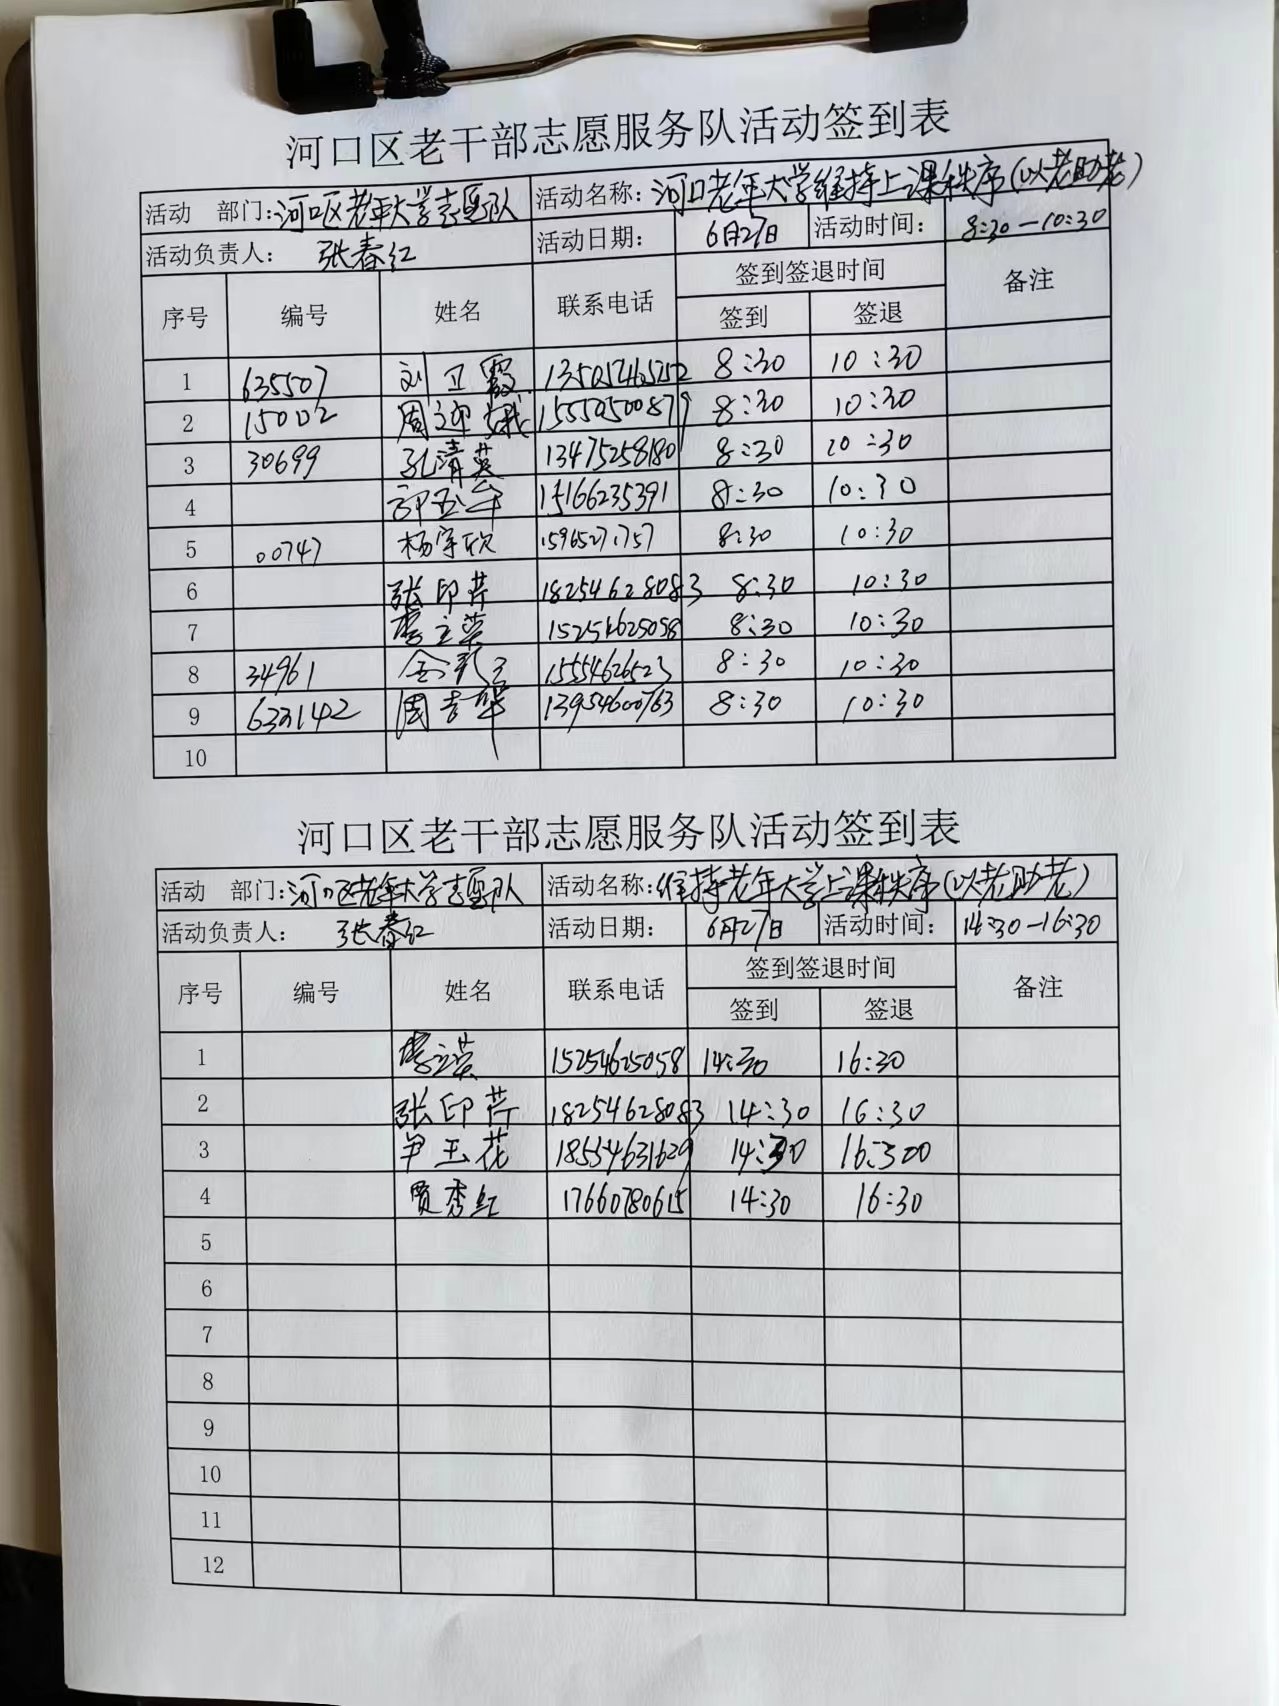 河口区老干部志愿服务队活动签到表
活动 部门:河口区老年大学志愿队 活动名称:河口老年大学维持上课秩序(以老助老)
活动负责人: 张春红 活动日期: 6月27日 活动时间: 8:30—10:30
序号 编号 姓名 联系电话 签到签退时间 备注
签到 签退
1 635507 刘卫霞 8:30 10:30
2 15002 周迎娥 15550500879 8:30 10:30
3 30699 孔清英 13475258180 8:30 10:30
4 15166235391 8:30 10:30
5 00747 杨宇欣 15965271757 8:30 10:30
6 张印芹 18254628083 8:30 10:30
7 李立英 15254625058 8:30 10:30
8 34961 15554626523 8:30 10:30
9 周吉华 13954600763 8:30 10:30
10
河口区老干部志愿服务队活动签到表
活动 部门:河口区老年大学志愿队 活动名称:维持老年大学上课秩序(以老助老)
活动负责人: 张春红 活动日期: 6月27日 活动时间: 14:30—16:30
序号 编号 姓名 联系电话 签到签退时间 备注
签到 签退
1 李立英 15254625058 14:30 16:30
2 张印芹 18254628083 14:30 16:30
3 尹玉花 18554631629 14:30 16:300
4 贾秀红 17660780615 14:30 16:30
5
6
7
8
9
10
11
12